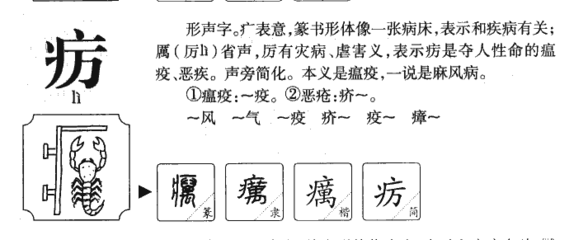 形声字。疒表意,篆书形体像一张病床,表示和疾病有关;
厲(厉lì)省声,厉有灾病、虐害义,表示疠是夺人性命的瘟
疫、恶疾。声旁简化。本义是瘟疫,一说是麻风病。
①瘟疫:~疫。②恶疮:疥~。
~风 ~气 ~疫 疥~ 疫~ 瘴~
疠
lì
篆
癘 隶
癘 楷
疠 简